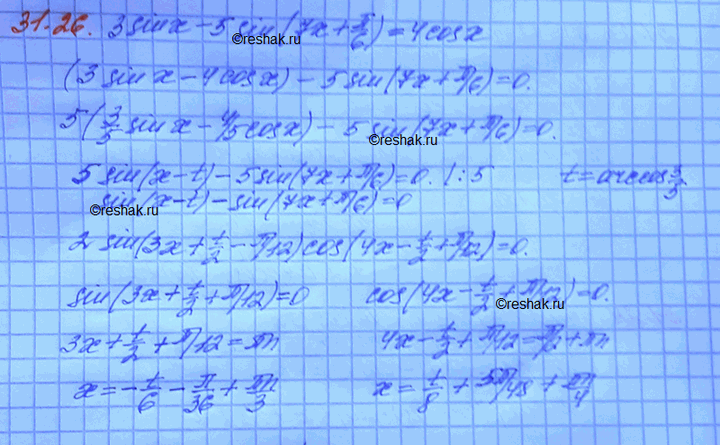 31.26. 3 sin x - 5 sin(7x + π/6) = 4 cos x
©reshak.ru
(3 sin x - 4 cos x) - 5 sin(7x + π/6) = 0.
5(3/5 sin x - 4/5 cos x) - 5 sin(7x + π/6) = 0.
©reshak.ru
5 sin(x - t) - 5 sin(7x + π/6) = 0. |:5 t = arccos 3/5
sin(x - t) - sin(7x + π/6) = 0
©reshak.ru
2 sin(3x + t/2 - π/12) cos(4x - t/2 + π/12) = 0.
sin(3x + t/2 + π/12) = 0 cos(4x - t/2 + π/12) = 0.
©reshak.ru
3x + t/2 + π/12 = πn 4x - t/2 + π/12 = π/2 + πn
x = - t/6 - π/36 + πn/3 x = t/8 + 5π/48 + πn/4